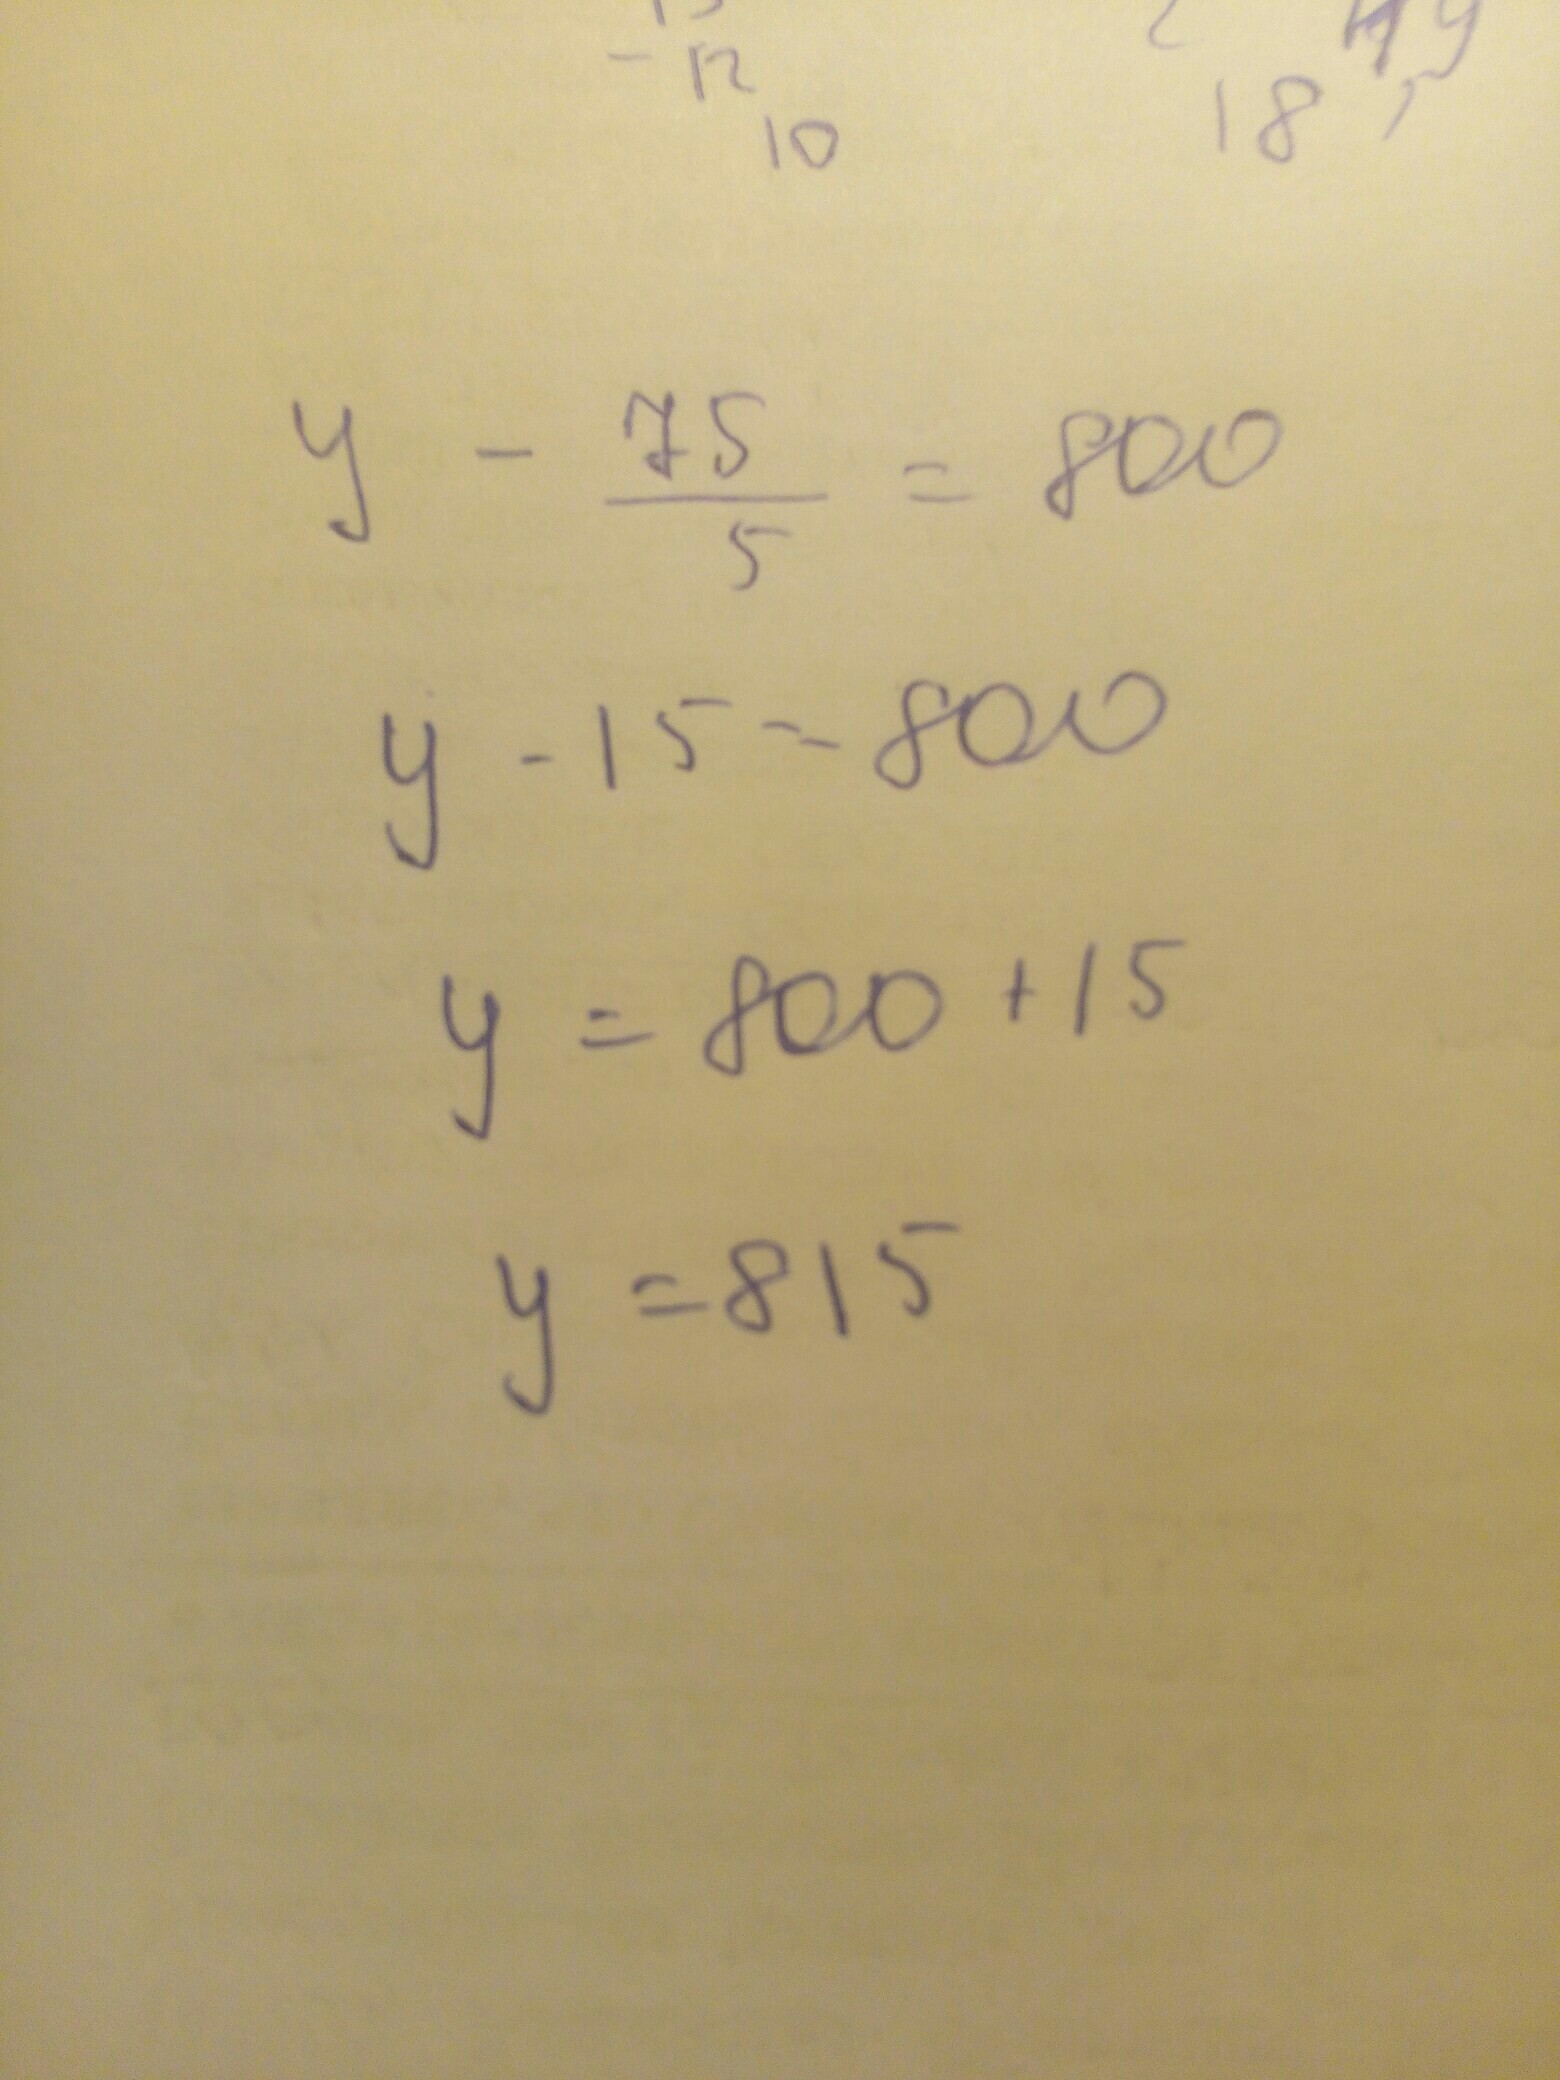 - 12
10
18
y - 75/5 = 800
y - 15 = 800
y = 800 + 15
y = 815